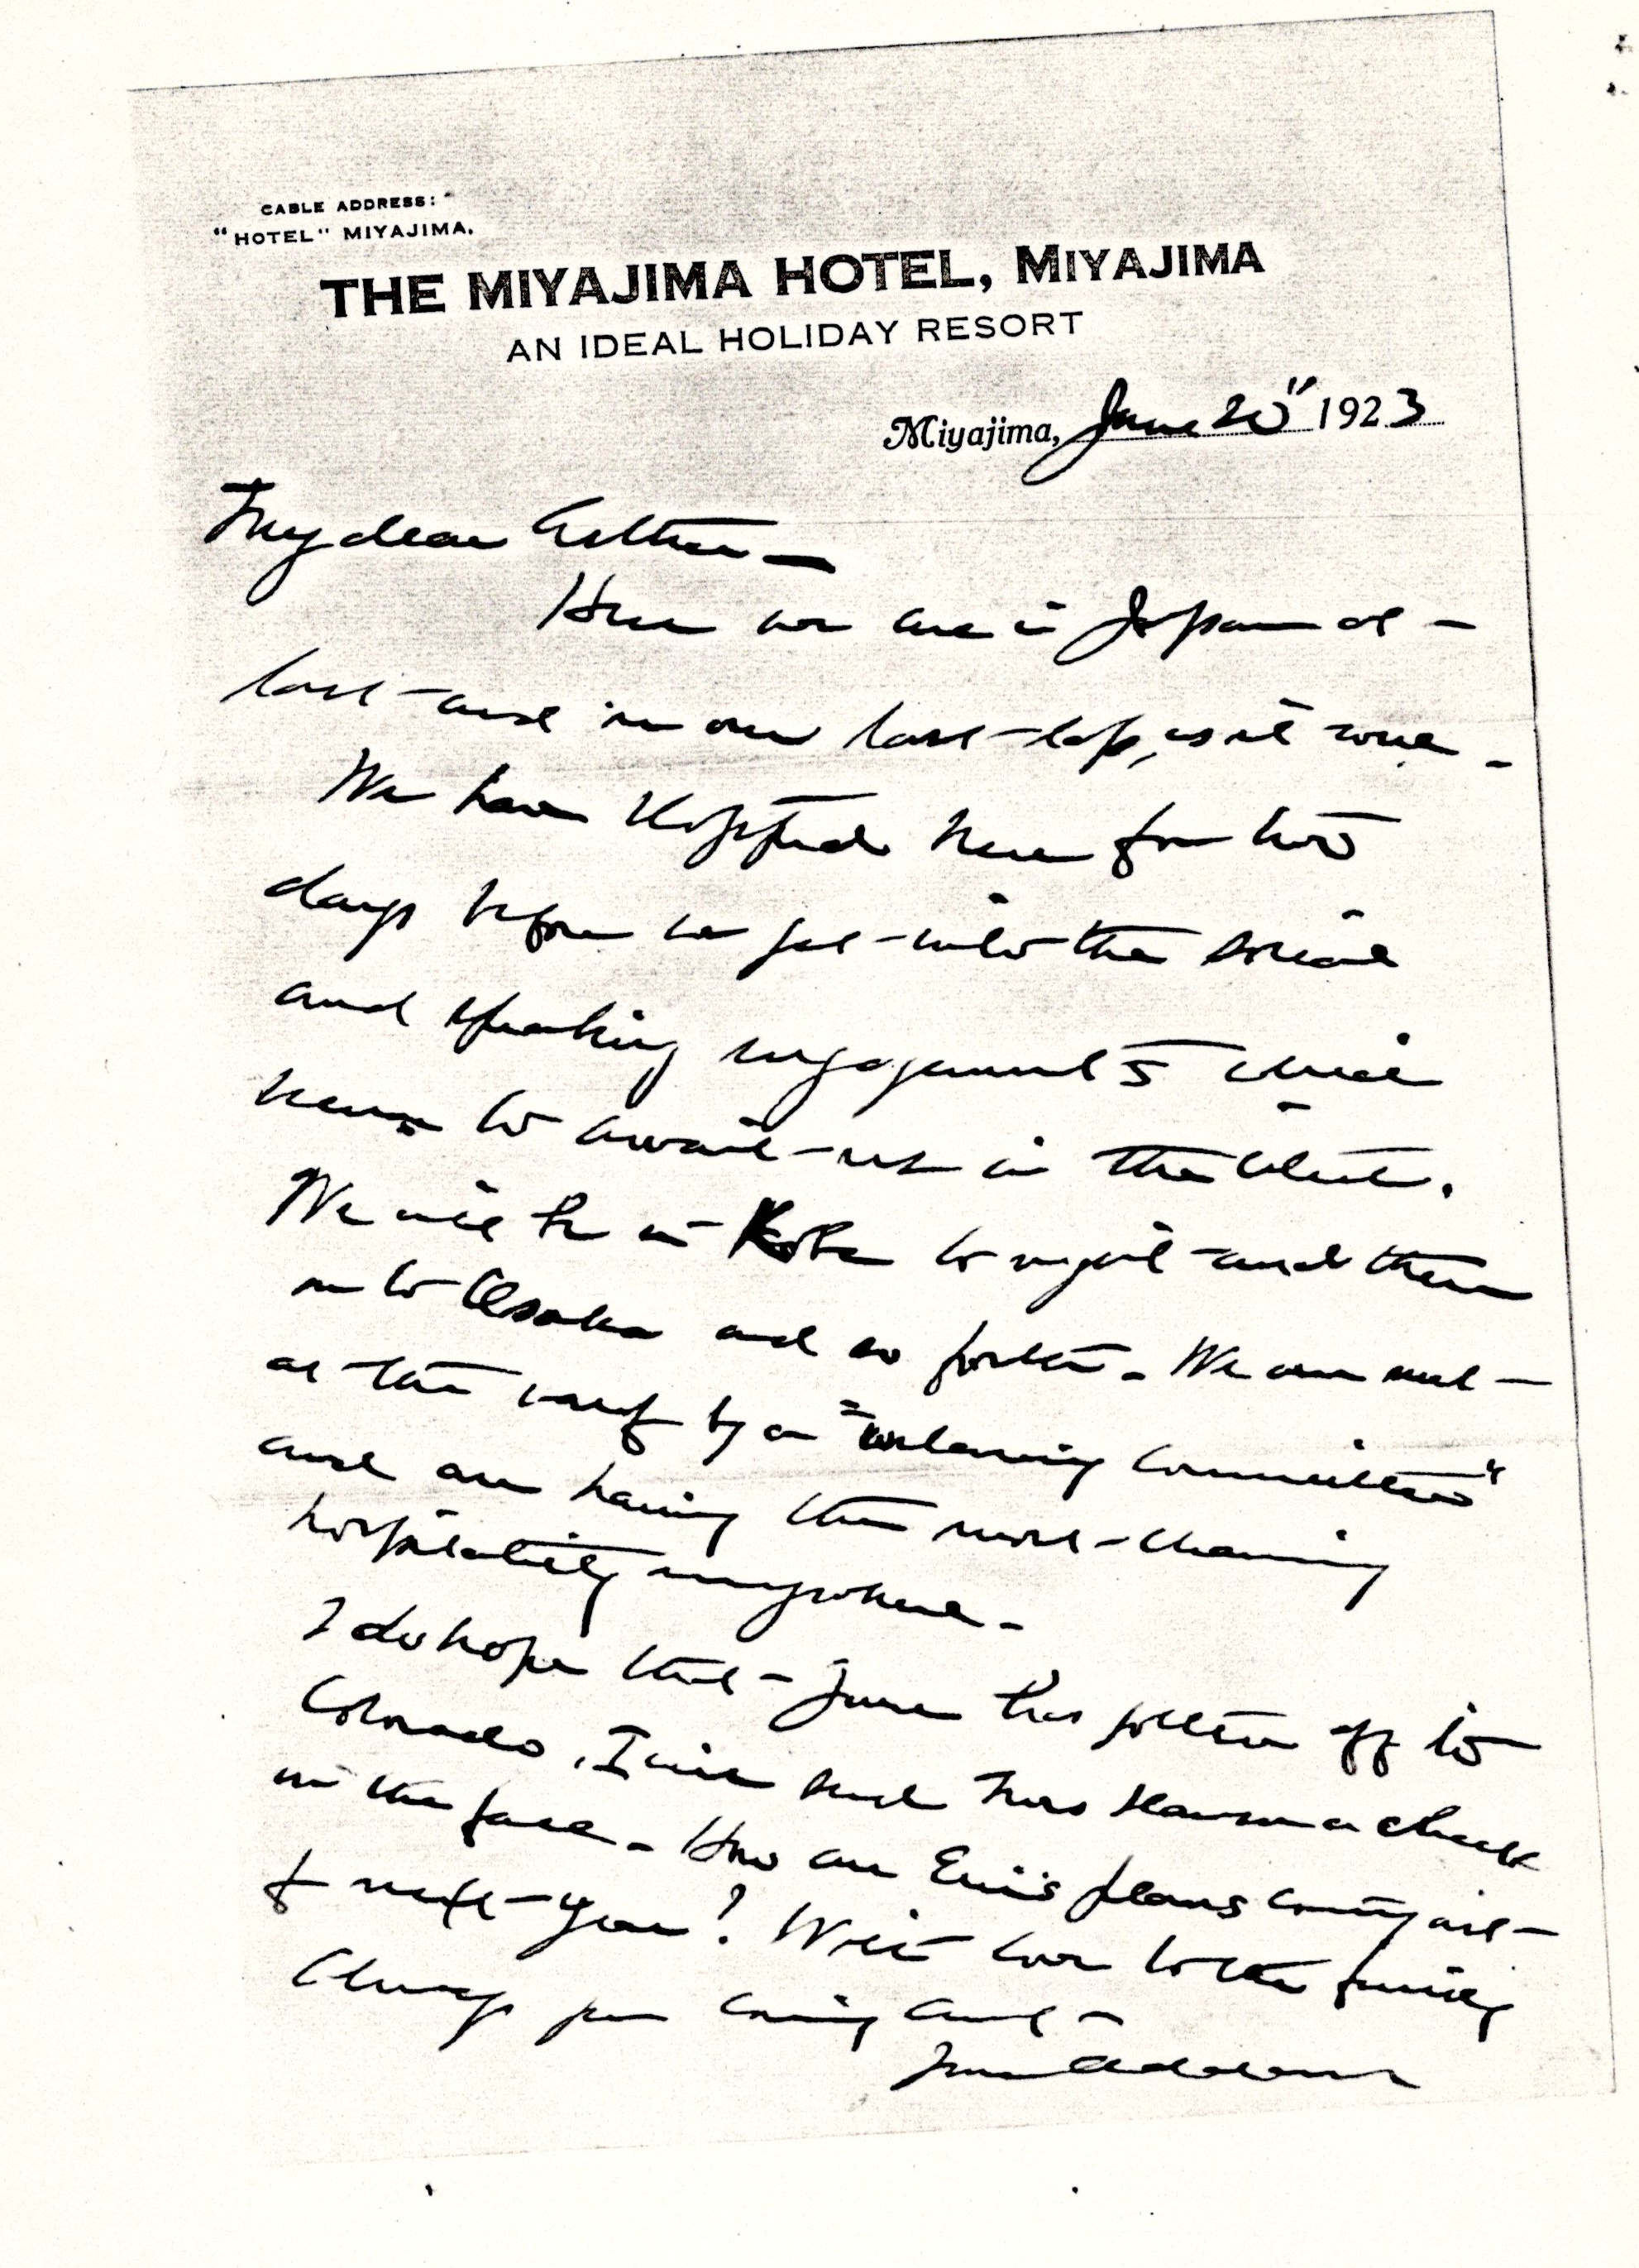 CABLE ADDRESS:
"HOTEL" MIYAJIMA.
THE MIYAJIMA HOTEL, MIYAJIMA
AN IDEAL HOLIDAY RESORT
Miyajima, June 20" 1923
My dear Esther —
Here we are in Japan at —
last and on our last lap, as it were —
We have stopped here for two
days before we get into the social
and speaking engagements which
seem to await us in the
We will be in Kobe to night and then
on to Osaka and so forth. We were met —
at the warf by a "welcoming committee"
and are having the most charming
hospitality everywhere —
I do hope that June has gotten off to
Colorado. I will send a check
on the face. How are Eri's plans coming out —
for next year? With love to the family
Always your loving aunt —
Jane Addams